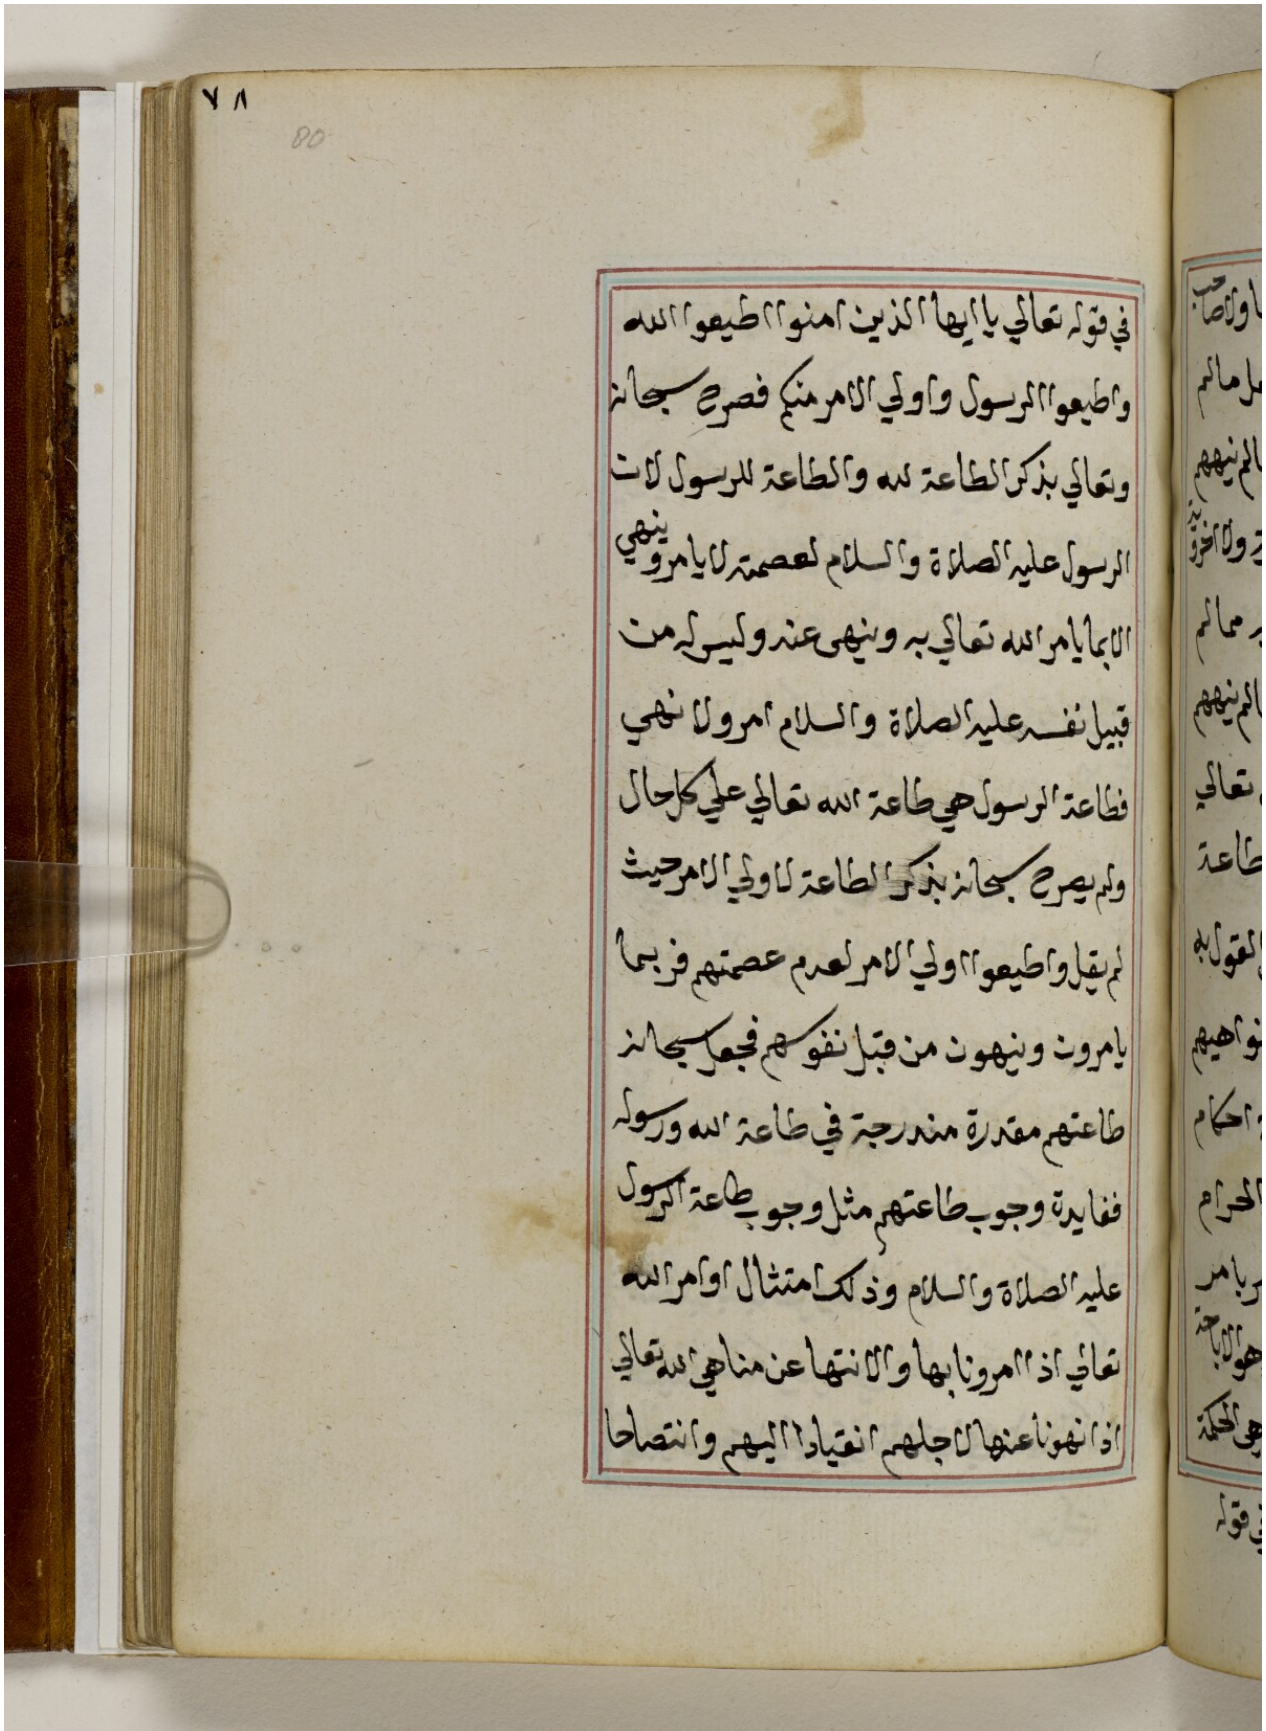 ٧٨
80
في قوله تعالي يا ايها الذين امنوا اطيعوا الله
واطيعوا الرسول واولي الامر منكم فصرح سبحانه
وتعالي بذكر الطاعة لله والطاعة للرسول لان
الرسول عليه الصلاة والسلام لعصمته لا يامر وينهي
الا بما يامر الله تعالي به وينهى عنه وليس له من
قبيل نفسه عليه الصلاة والسلام امر ولا نهي
فطاعة الرسول هي طاعة الله تعالي علي كل حال
ولم يصرح سبحانه بذكر الطاعة لاولي الامر حيث
لم يقل واطيعوا اولي الامر لعدم عصمتهم فربما
يامرون وينهون من قبل نفوسهم فجعل سبحانه
طاعتهم مقدرة مندرجة في طاعة الله ورسوله
ففايدة وجوب طاعتهم مثل وجوب طاعة الرسول
عليه الصلاة والسلام وذلك امتثال اوامر الله
تعالي اذا امرونا بها والانتها عن مناهي الله تعالي
اذا نهونا عنها لاجلهم انقيادا اليهم وانتصاحا
مالم
ينههم
ولا
ينههم
تعالي
طاعة
القول به
نواهيهم
احكام
الحرام
هو الاباحة
هي الحكمة
في قوله